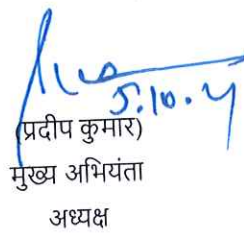 5.10.
(प्रदीप कुमार)
मुख्य अभियंता
अध्यक्ष